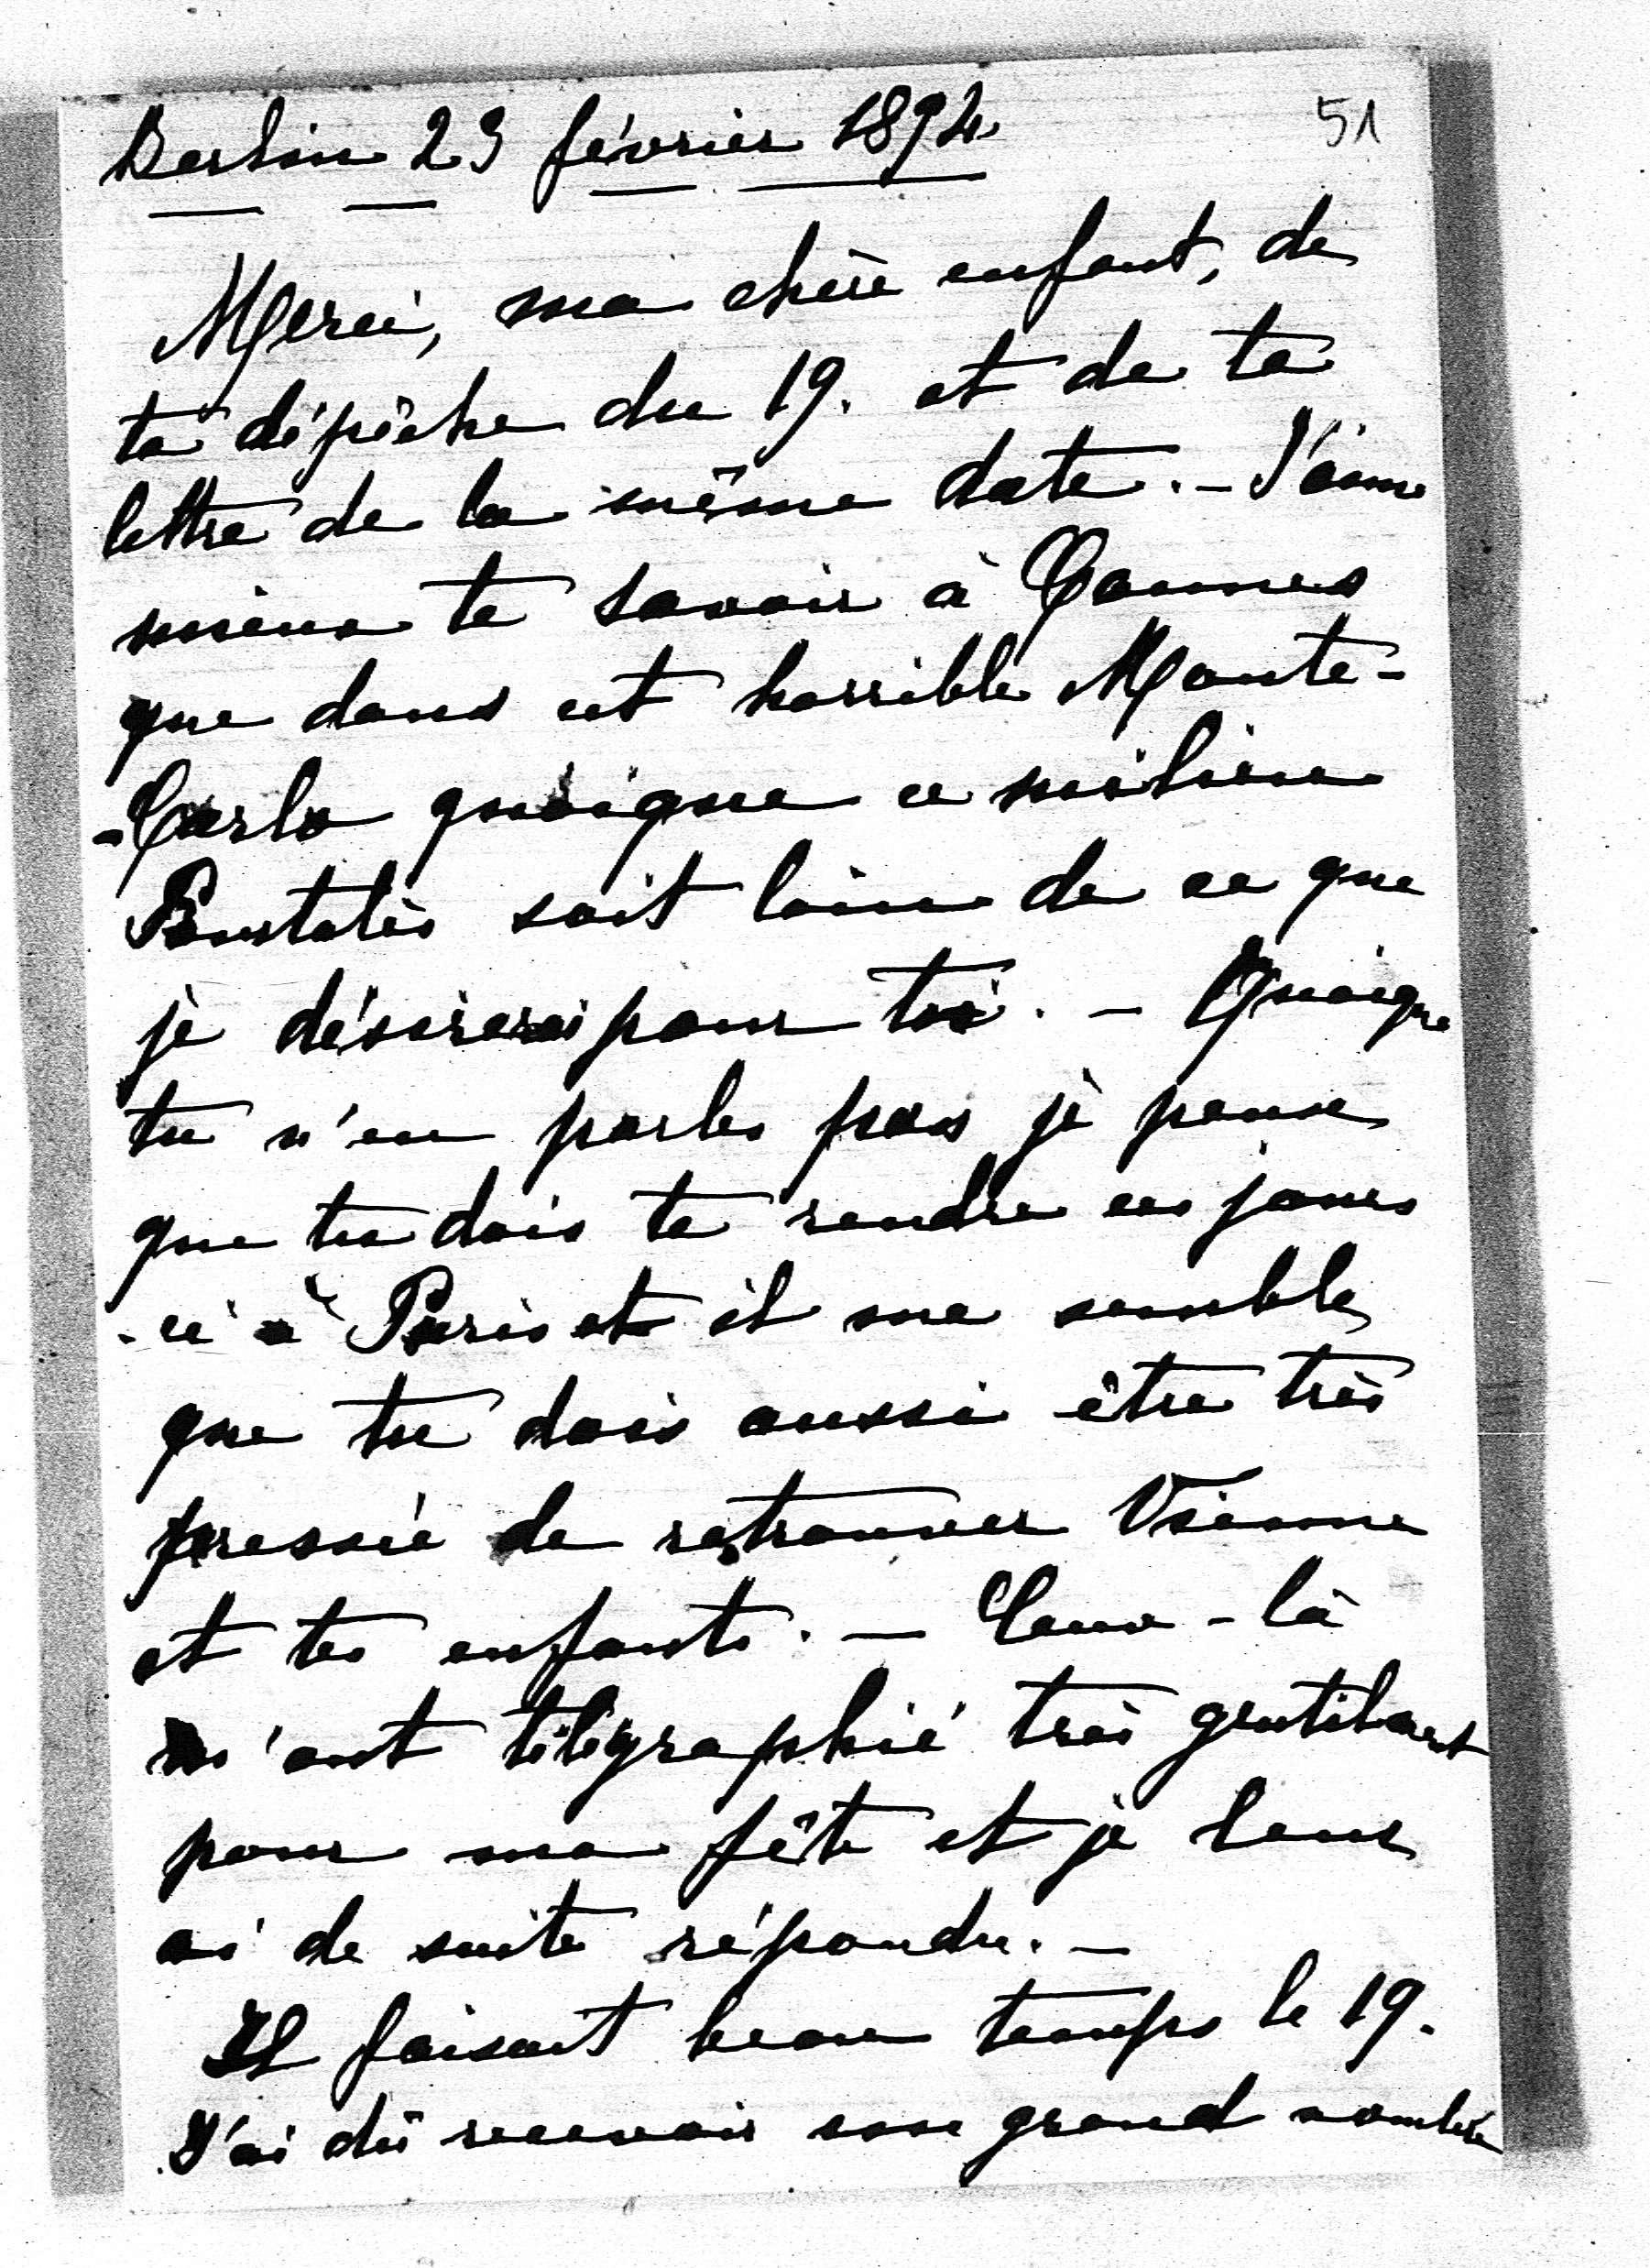 51
Berlin 23 février 1894
Merci, ma chère enfant, de
ta dépêche du 19. et de ta
lettre de la même date. - J'aime
mieux te savoir à Cannes
que dans cet horrible Monte-
-Carlo quoique ce milieu
Pourtalès soit loin de ce que
je désirerai pour toi. - Quoique
tu n'en parles pas je pense
que tu dois te rendre ces jours
-ci à Paris et il me semble
que tu dois aussi être très
pressée de retrouver Vienne
et tes enfants. - Ceux-là
m'ont télégraphié très gentiment
pour ma fête et je leur
ai de suite répondu. -
Il faisait beau temps le 19.
J'ai dû recevoir un grand nombre